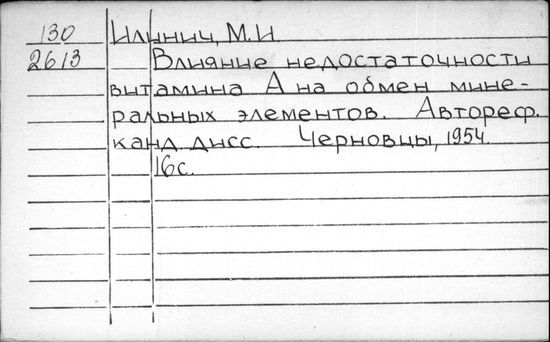 130 Ильнич, М.И
2613 Влияние недостаточности
витамина А на обмен мине-
ральных элементов. Автореф.
канд дисс. Черновцы, 1954.
16с.